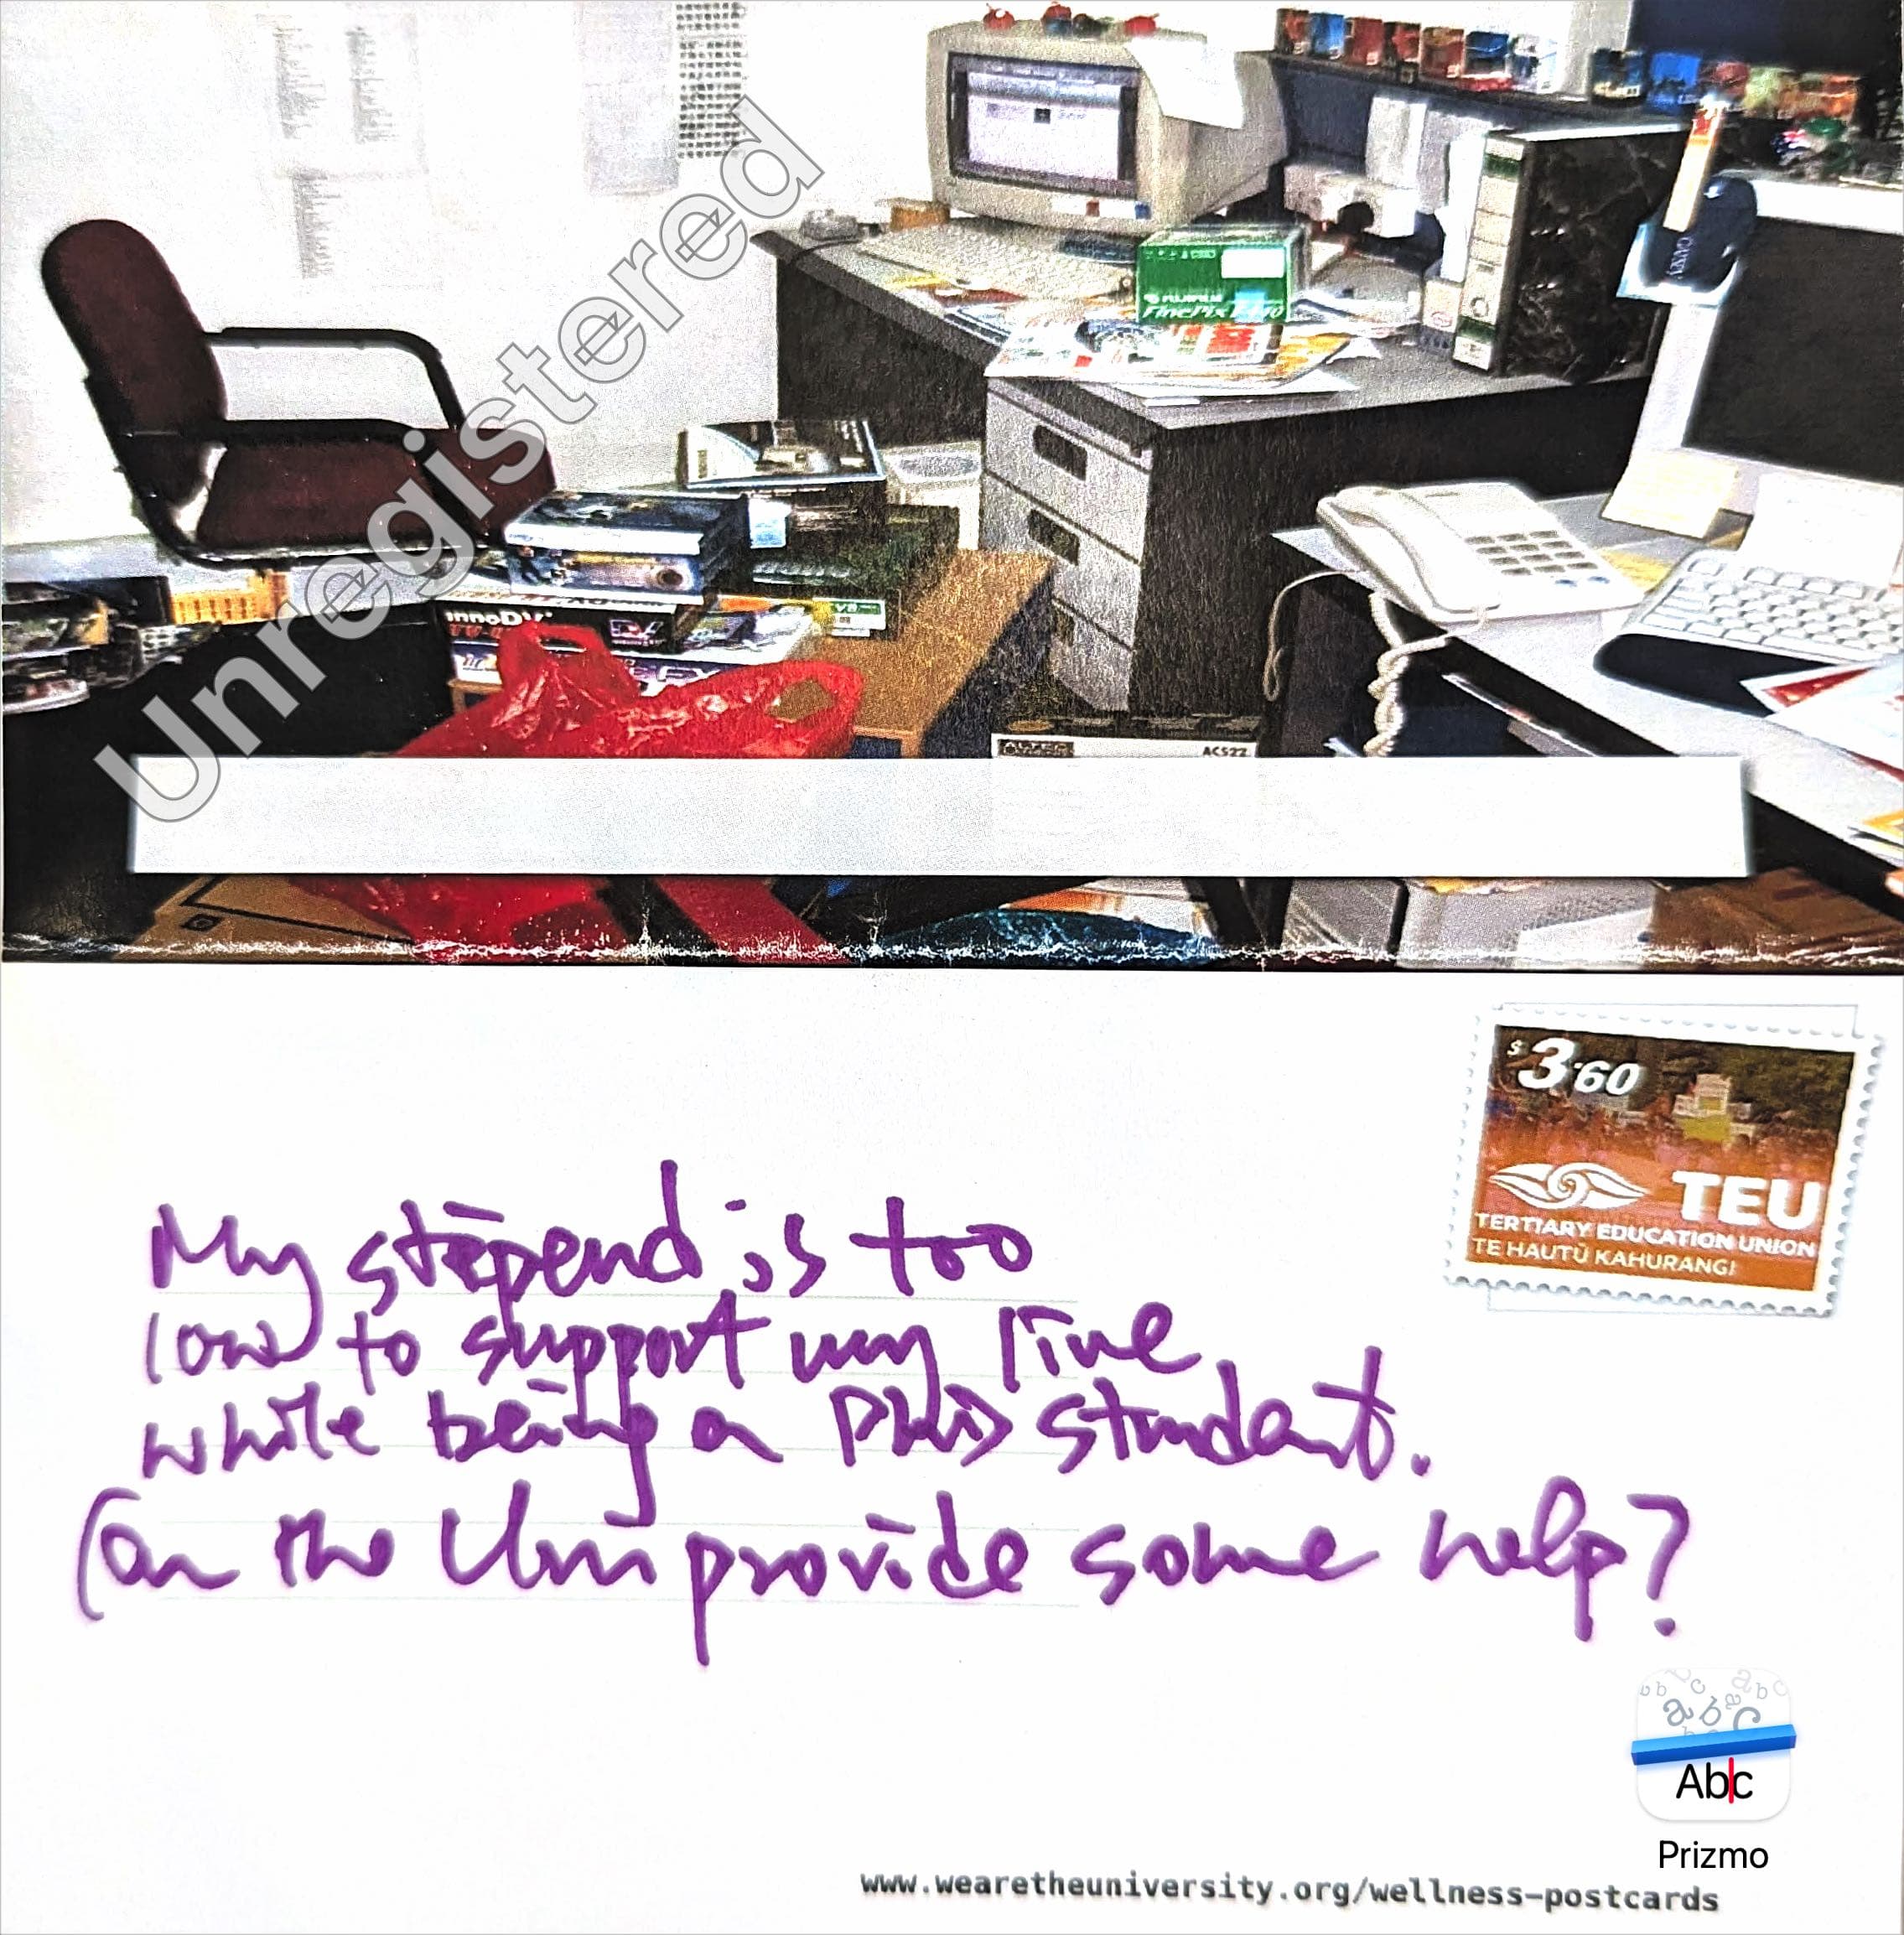 Unregistered
FUJIFILM
FinePix
innoDV
AC522
$3.60
TEU
TERTIARY EDUCATION UNION
TE HAUTŪ KAHURANGI
My stipend is too
low to support my live
while being a PhD student.
Can the Uni provide some help?
Abc
Prizmo
www.wearetheuniversity.org/wellness-postcards